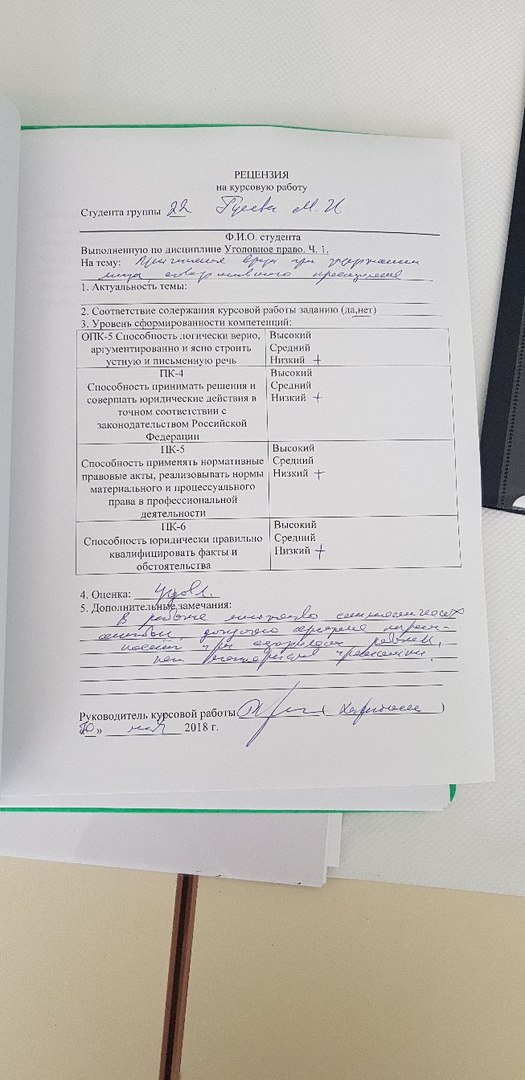 РЕЦЕНЗИЯ
на курсовую работу
Студента группы 22 Гусева М. И
Ф.И.О. студента
Выполненную по дисциплине Уголовное право. Ч. 1.
На тему: Причинение вреда при задержании
лица совершившего преступление
1. Актуальность темы:
2. Соответствие содержания курсовой работы заданию (да,нет)
3. Уровень сформированности компетенций:
ОПК-5 Способность логически верно,
аргументированно и ясно строить
устную и письменную речь
Высокий
Средний
Низкий +
ПК-4
Способность принимать решения и
совершать юридические действия в
точном соответствии с
законодательством Российской
Федерации
Высокий
Средний
Низкий +
ПК-5
Способность применять нормативные
правовые акты, реализовывать нормы
материального и процессуального
права в профессиональной
деятельности
Высокий
Средний
Низкий +
ПК-6
Способность юридически правильно
квалифицировать факты и
обстоятельства
Высокий
Средний
Низкий +
4. Оценка: Удовл.
5. Дополнительные замечания:
В работе множество
работы
Руководитель курсовой работы ( )
» май 2018 г.